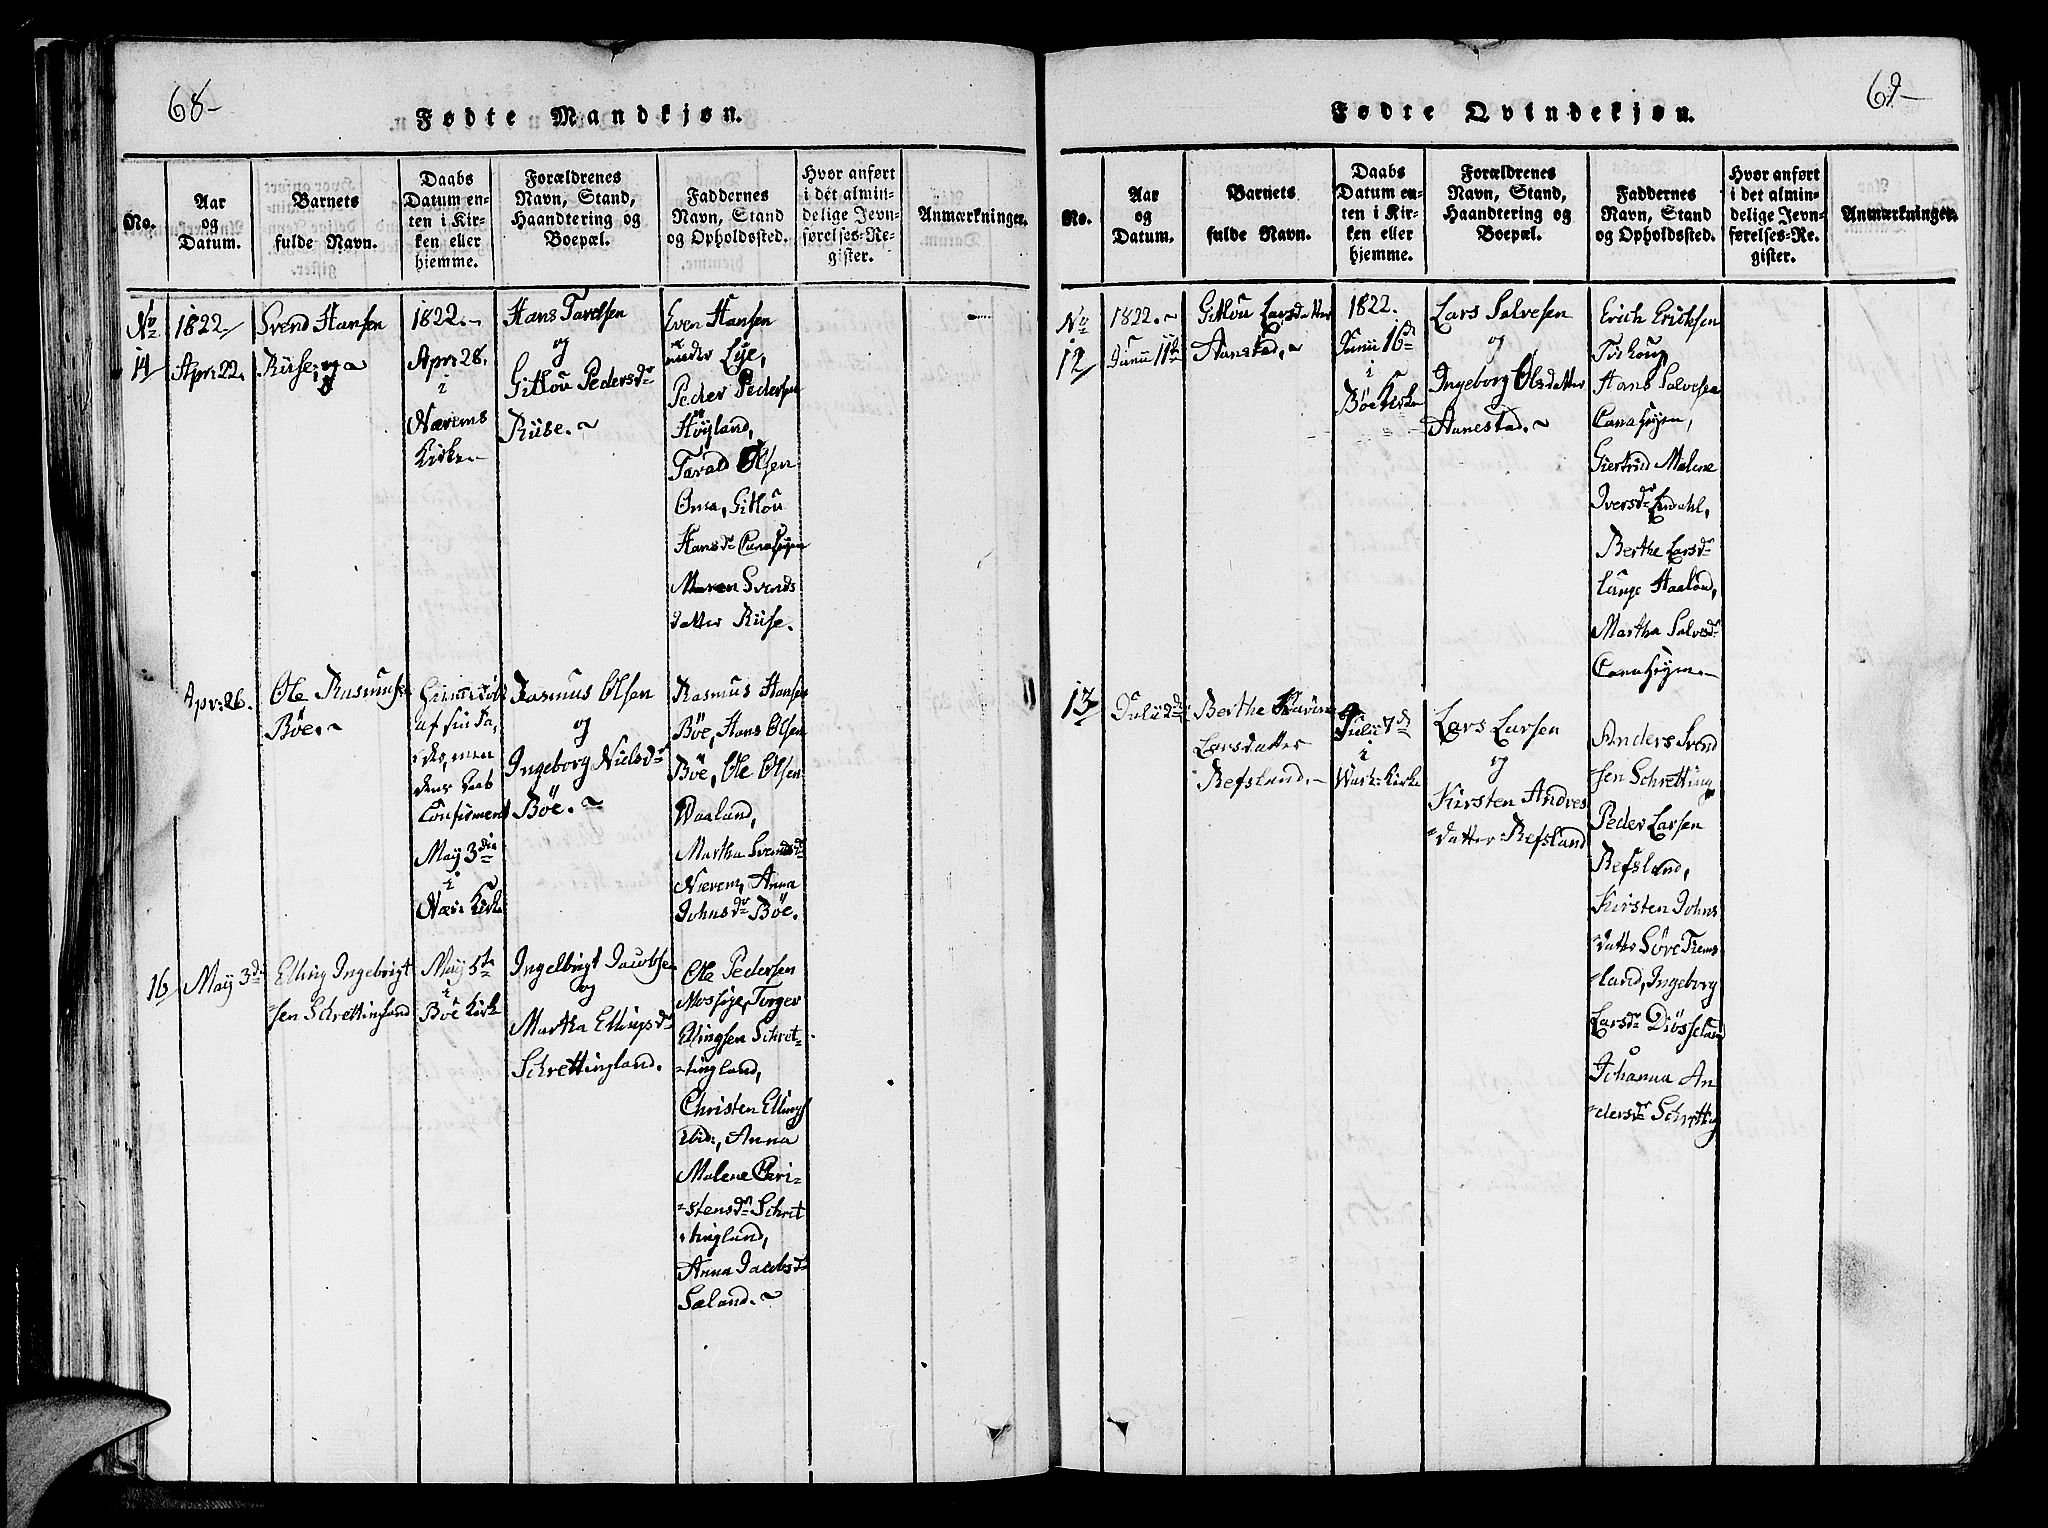 68-
Fødte Mandkjøn.
No.
Aar
og
Datum.
Barnets
fulde Navn.
Daabs
Datum en-
ten i Kir-
ken eller
hjemme.
Forældrenes
Navn, Stand,
Haandtering og
Boepæl.
Faddernes
Navn, Stand
og Opholdssted.
Hvor anført
i det almin-
delige Jevn-
førelses-Re-
gister.
Anmærkninger.
No
14
1822
Apr: 22.
Svend Hansen
Riise,
1822.-
Apr: 28.
i
Nærems
Kirke
Hans Tarelsen
og
Gitlou Pedersdr
Riise.~
Even Hansen
Lye,
Peder Pedersen
Høyland,
Tarald Olsen
Oma, Gitlou
Hansdr
Maren Svends
datter Riise.
Apr: 26.
Ole Rasmusen
Böe.~
af
men
dens Daab
May 3die
i
Nær: Kirke
Rasmus Olsen
og
Ingeborg Nielsdr
Böe.~
Rasmus Hansen
Böe, Hans Olsen
Böe, Ole Olsen
Martha Svendsdr
Nærem, Anna
Johnsdr Böe.
16
May 3die
Elling Ingebrigt
-sen Schrettingland
May 5te
i
Böe Kirke
Ingelbrigt Jacobsen
og
Martha Ellingsdr
Schrettingland.
Ole Pedersen
Mossige, Torger
Ellingsen Schret-
-tingland,
Christen Ellings
ibid:, Anna
Malene Chri-
-stensdr Schret
-tingland,
Anna Jacobsdr
Sæland.~
69-
Fødte Qvindekjøn.
No.
Aar
og
Datum.
Barnets
fulde Navn.
Daabs
Datum en-
ten i Kir-
ken eller
hjemme.
Forældrenes
Navn, Stand,
Haandtering og
Boepæl.
Faddernes
Navn, Stand
og Opholdssted.
Hvor anført
i det almin-
delige Jevn-
førelses-Re-
gister.
Anmærkninger.
No
12
1822.~
Junii 11te
Gitlou Larsdatter
Aanestad,~
1822.
Junii 16de
i
Böe Kirke
Lars Salvesen
og
Ingeborg Olsdatter
Aanestad.~
Erich Ericksen
Hans Salvesen
Giertrud Malene
Iversdr
Berthe Larsdr
Haaland,
Martha Salvesdr
13
Julii 2de
Berthe Karine
Larsdatter
Refsland.~
Julii 7de
i
Warh: Kirke
Lars Larsen
og
Kirsten Andres
-datter Refsland
Anders Svend
-sen Schretting
Peder Larsen
Refsland,
Kirsten Johns
-datter Søre Trems
-land, Ingeborg
Larsdr
Johanna An
-dersdr Schretting